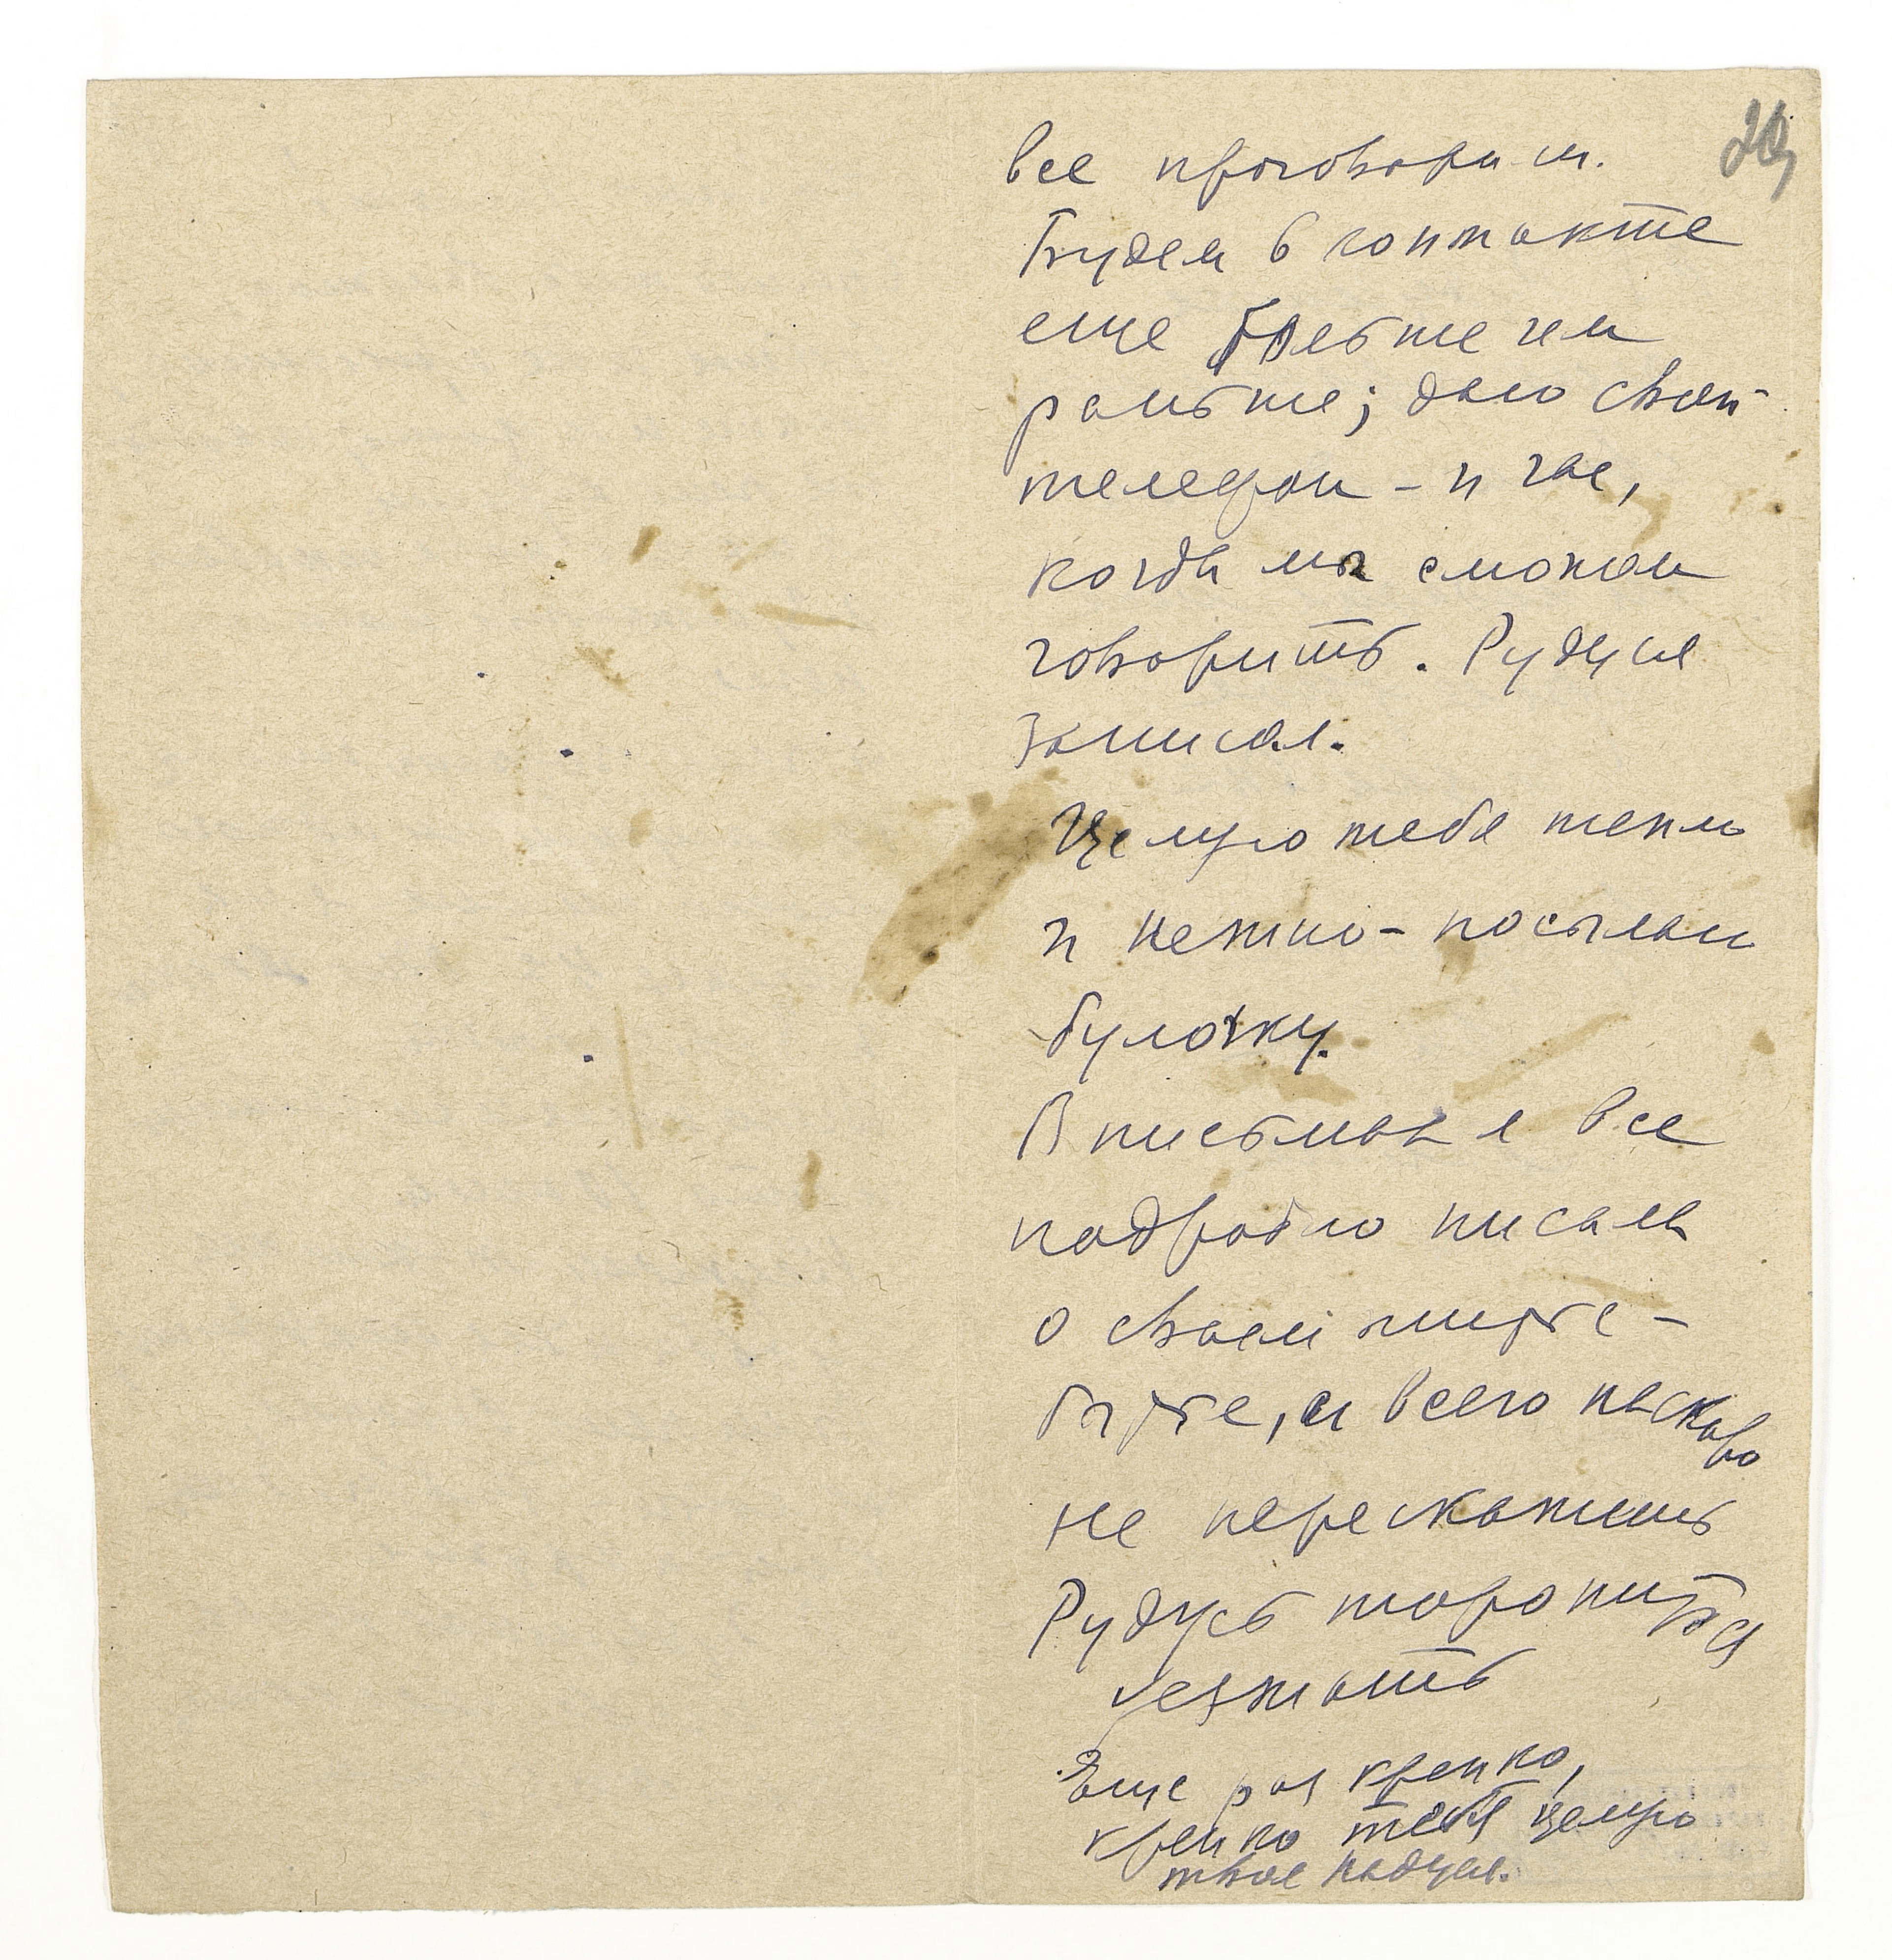 20
все проговорили.
Будем в контакте
еще больше чем
раньше; дало свой
телефон - и час,
когда мы сможем
говорить. Рудуся
записал.
Целую тебя тепло
и нежно - посылаю
булочку.
В письмах я все
подробно писала
о своем житье -
бытье, а всего наскоро
не перескажешь
Рудусь торопится
уезжать
Еще раз крепко,
крепко тебя целую
твоя Надуся.